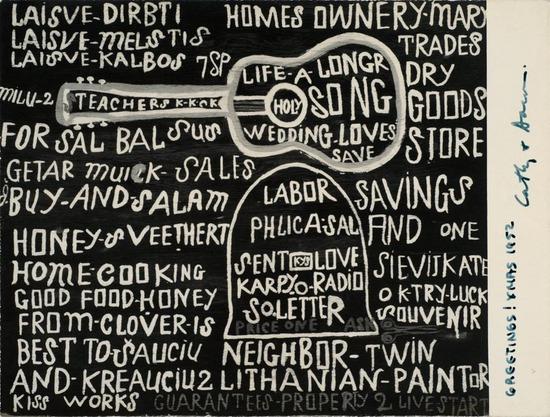 LAISVE-DIRBTI
LAISVE-MELSTIS
LAISVE-KALBOS 7SP
HOMES OWNERY-MARY
TRADES
DRY
GOODS
STORE
MILU-2
TEACHERS K-K-O-K
LIFE-A LONGR
HOLY SONG
WEDDING-LOVES
SAVE
FOR SAL BAL SUS
GETAR MUICK-SALES
BUY-AND SALAM
HONEY-SVEETHERT
HOME-COOKING
GOOD FOOD-HONEY
FROM-CLOVER-IS
BEST TO-SAUCIU
AND-KREAUCIU2
KISS WORKS
LABOR
PHLICA-SAL
SENT LOVE
KARPYO-RADIO
SO-LETTER
PRICE ONE ASK
SAVINGS
AND ONE
SIEVISKATE
OK-TRY-LUCK
SOUVENIR
NEIGHBOR-TWIN
LITHANIAN-PAINTOR
GUARANTEES-PROPERTY 2 LIVESTART
GREETINGS! XMAS 1952